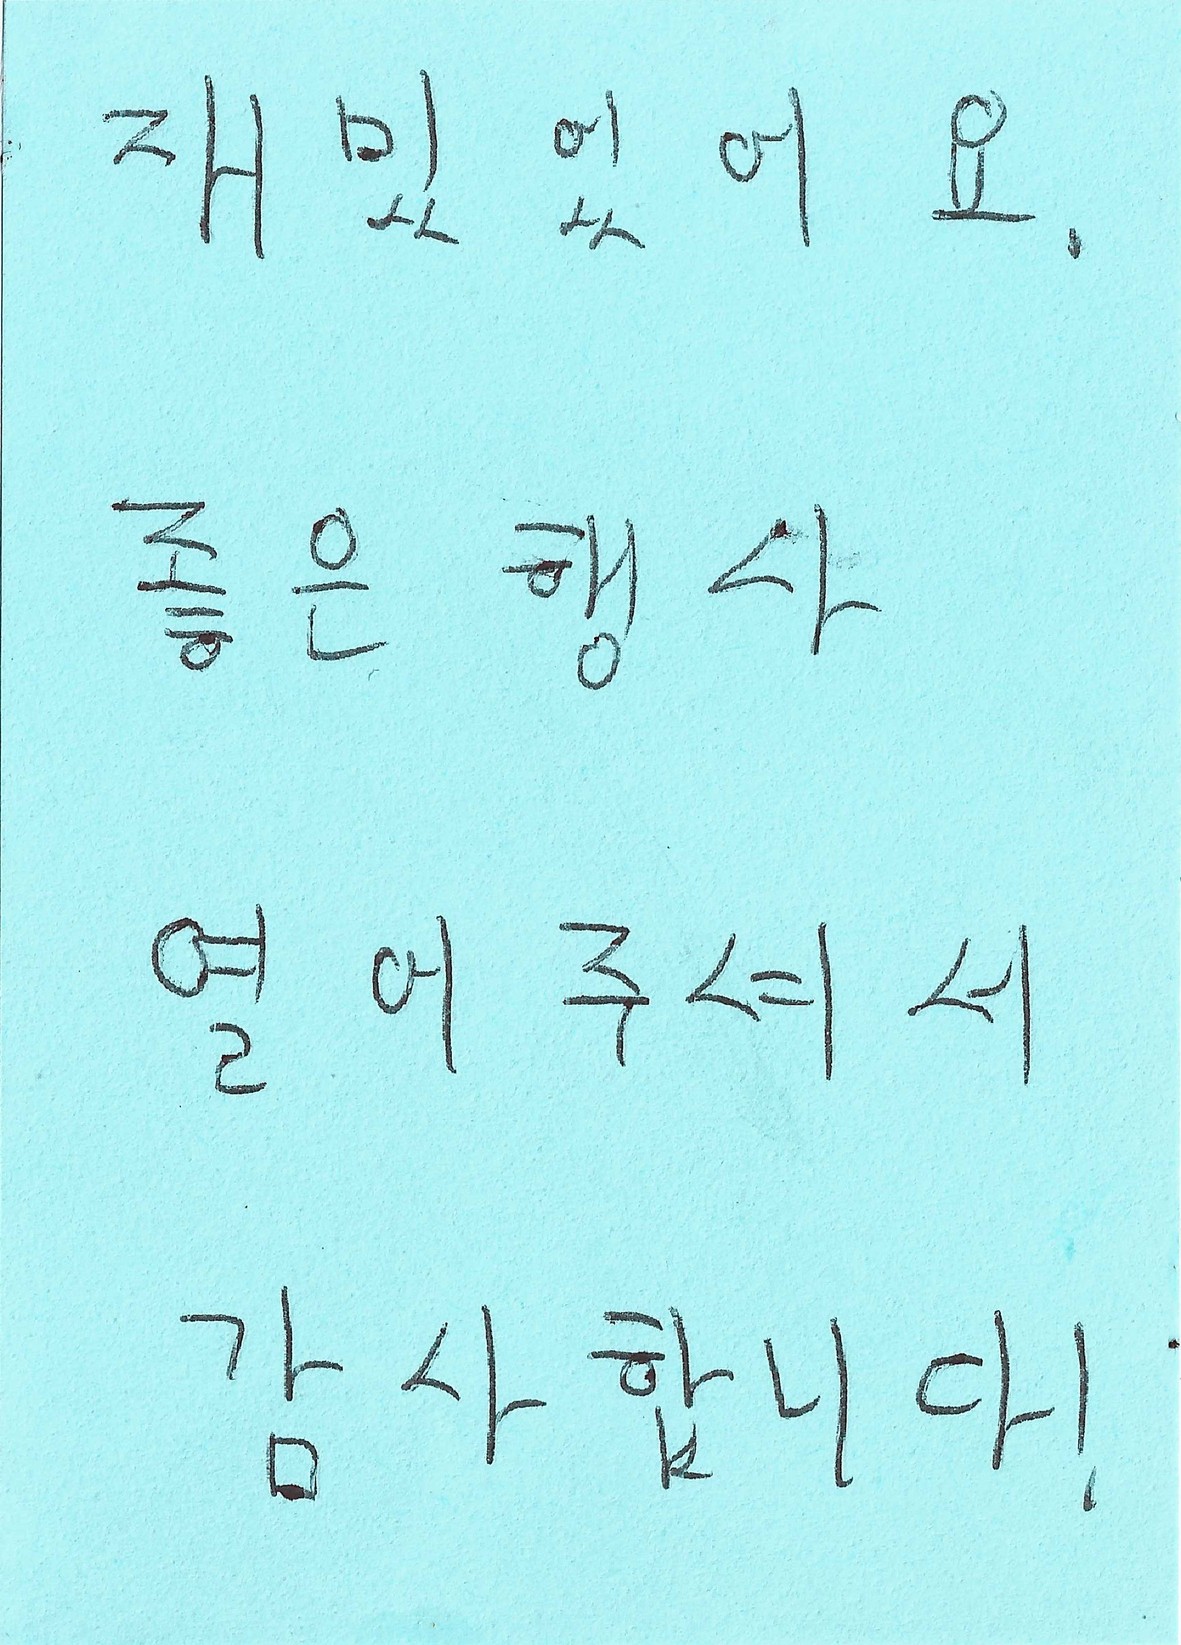 재밌었어요.
좋은 행사
열어 주셔서
감사합니다!